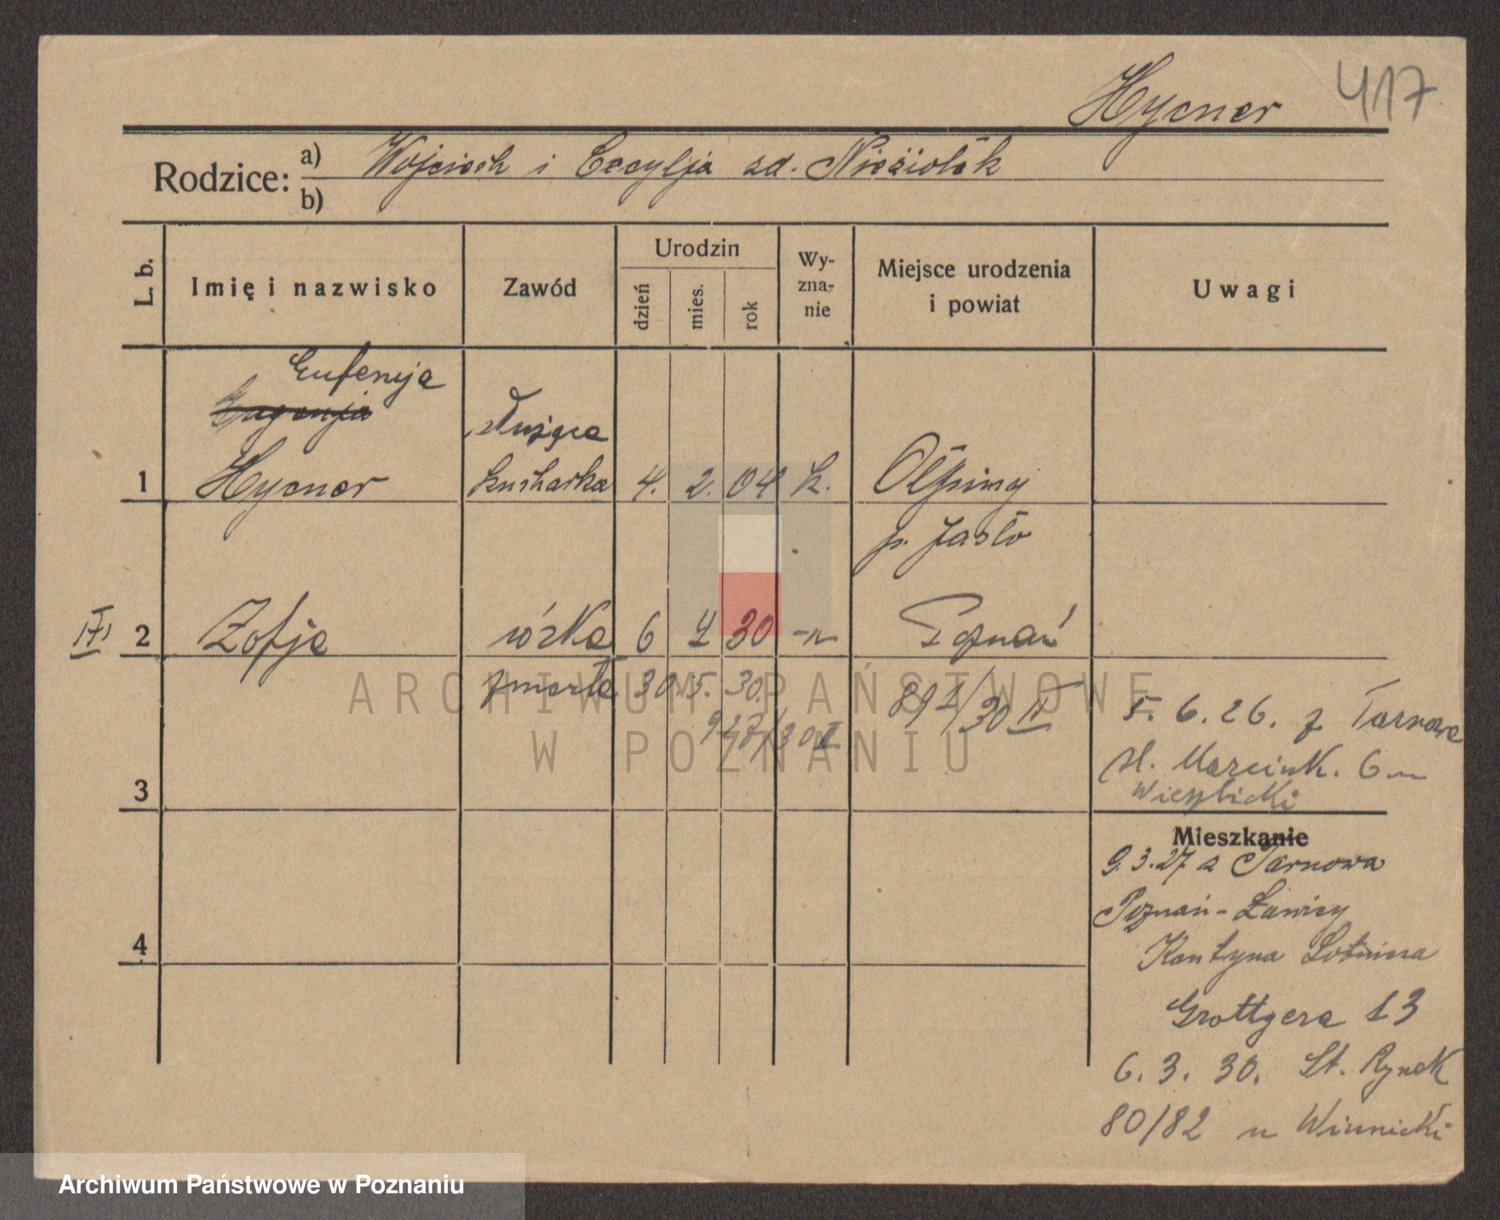 Hycner 417
Rodzice: a) Wojciech i Cecylja zd. Nieziołek
b)
L. b. Imię i nazwisko Zawód Urodzin dzień mies. rok Wy-zna-nie Miejsce urodzenia i powiat Uwagi
Eufemja
Eugenja służąca
1 Hycner kucharka 4. 2. 04 k. Olpiny
p. Jasło
2 Zofja córka 6 30 -"- Poznań
zmarła 30. 5. 30. 891/30 II
927/30 II
5. 6. 26. z Tarnowa
Marcink. 6
3
Mieszkanie
9. 3. 27 z Tarnowa
Poznań - Ławicy
Kantyna Lotnicza
4
Grottgera 13
6. 3. 30. St. Rynek
80/82 u Winnicki
ARCHIWUM PAŃSTWOWE
W POZNANIU
Archiwum Państwowe w Poznaniu